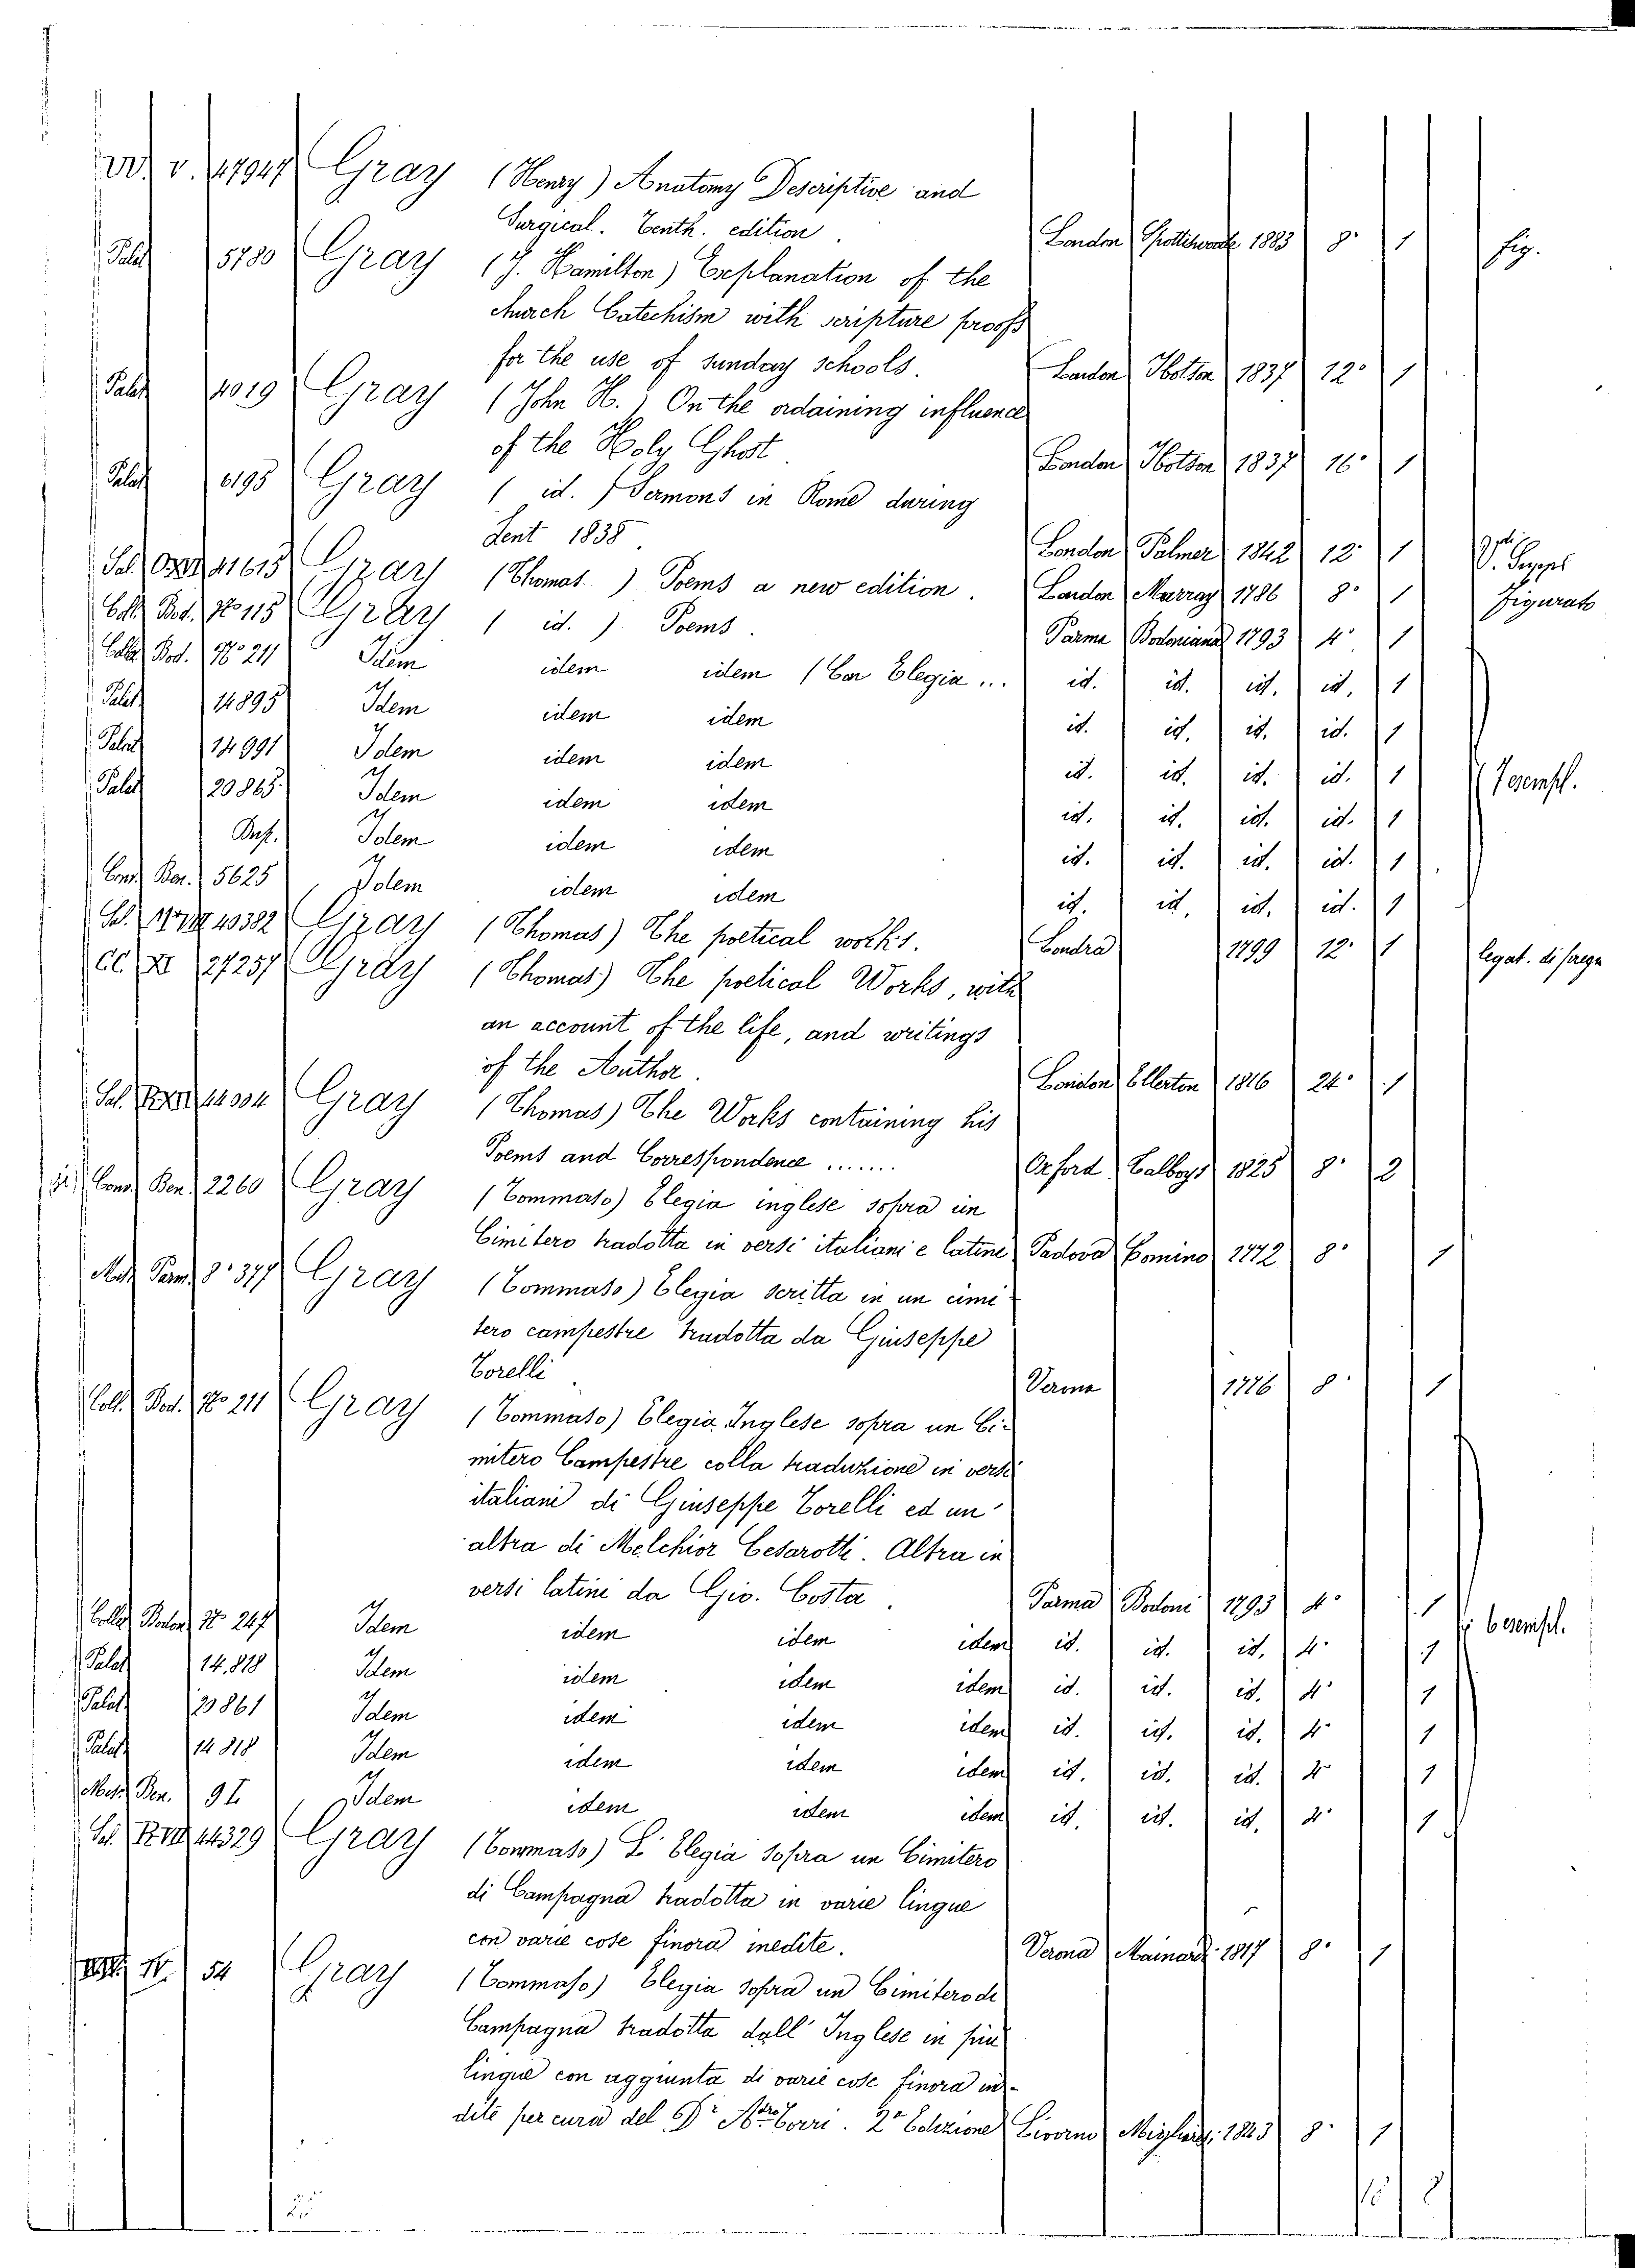 v. 47947 Gray (Henry) Anatomy Descriptive and
Surgical. Tenth. edition. London 1883 8° 1 fig.
Palat 5780 Gray (J. Hamilton) Explanation of the
church Catechism with scripture proofs
for the use of sunday schools. London Ibotson 1837 12° 1
Palat 4019 Gray (John H.) On the ordaining influence
of the Holy Ghost London Ibotson 1837 16° 1
Palat 6195 Gray ( id. ) Sermons in Rome during
Lent 1838 London Palmer 1842 12° 1
Sal. 41615 Gray (Thomas ) Poems a new edition. London Murray 1786 8° 1 Figurato
Coll. Bod. N° 115 Gray ( id. ) Poems. Parma Bodoniana 1793 4° 1
Colle. Bod. N° 211 Idem idem idem (Con Elegia... id. id. id. id. 1
Palat 14895 Idem idem idem id. id. id. id. 1
Palat 14991 Idem idem idem id. id. id. id. 1 7 esempl.
Palat 20865 Idem idem idem id. id. id. id. 1
Idem idem idem id. id. id. id. 1
Cons. Ben. 5625 Idem idem idem id. id. id. id. 1
Sal. 40382 Gray (Thomas) The poetical works. Londra 1799 12° 1
CC. XI 27257 Gray (Thomas) The poetical Works, with
an account of the life, and writings
of the Author. London Ellerton 1816 24° 1
Sal. 44004 Gray (Thomas) The Works containing his
Poems and Correspondence ....... Oxford Talboys 1825 8° 2
Cons. Ben. 2260 Gray (Tommaso) Elegia inglese sopra un
Cimitero tradotta in versi italiani e latini Padova Comino 1772 8° 1
Parm. 8° 377 Gray (Tommaso) Elegia scritta in un cimi
tero campestre tradotta da Giuseppe
Torelli Verona 1776 8° 1
Coll. Bod. N° 211 Gray (Tommaso) Elegia Inglese sopra un Ci-
mitero Campestre colla traduzione in versi
italiani di Giuseppe Torelli ed un'
altra di Melchior Cesarotti. Altra in
versi latini da Gio. Costa. Parma Bodoni 1793 4° 1
Colle. Bodon. N° 247 Idem idem idem idem id. id. id. 4° 1 6 esempl.
Palat 14,818 Idem idem idem idem id. id. id. 4° 1
Palat. 20861 Idem idem idem idem id. id. id. 4° 1
Palat. 14818 Idem idem idem idem id. id. id. 4° 1
Ben. Idem idem idem idem id. id. id. 4° 1
Sal. 44329 Gray (Tommaso) L' Elegia sopra un Cimitero
di Campagna tradotta in varie lingue
con varie cose finora inedite. Verona Mainardi 1817 8° 1
54 Gray (Tommaso) Elegia sopra un Cimitero di
Campagna tradotta dall' Inglese in più
lingue con aggiunta di varie cose finora ine-
dite per cura del Dr Torri. 2a Edizione Livorno 1843 8° 1
25